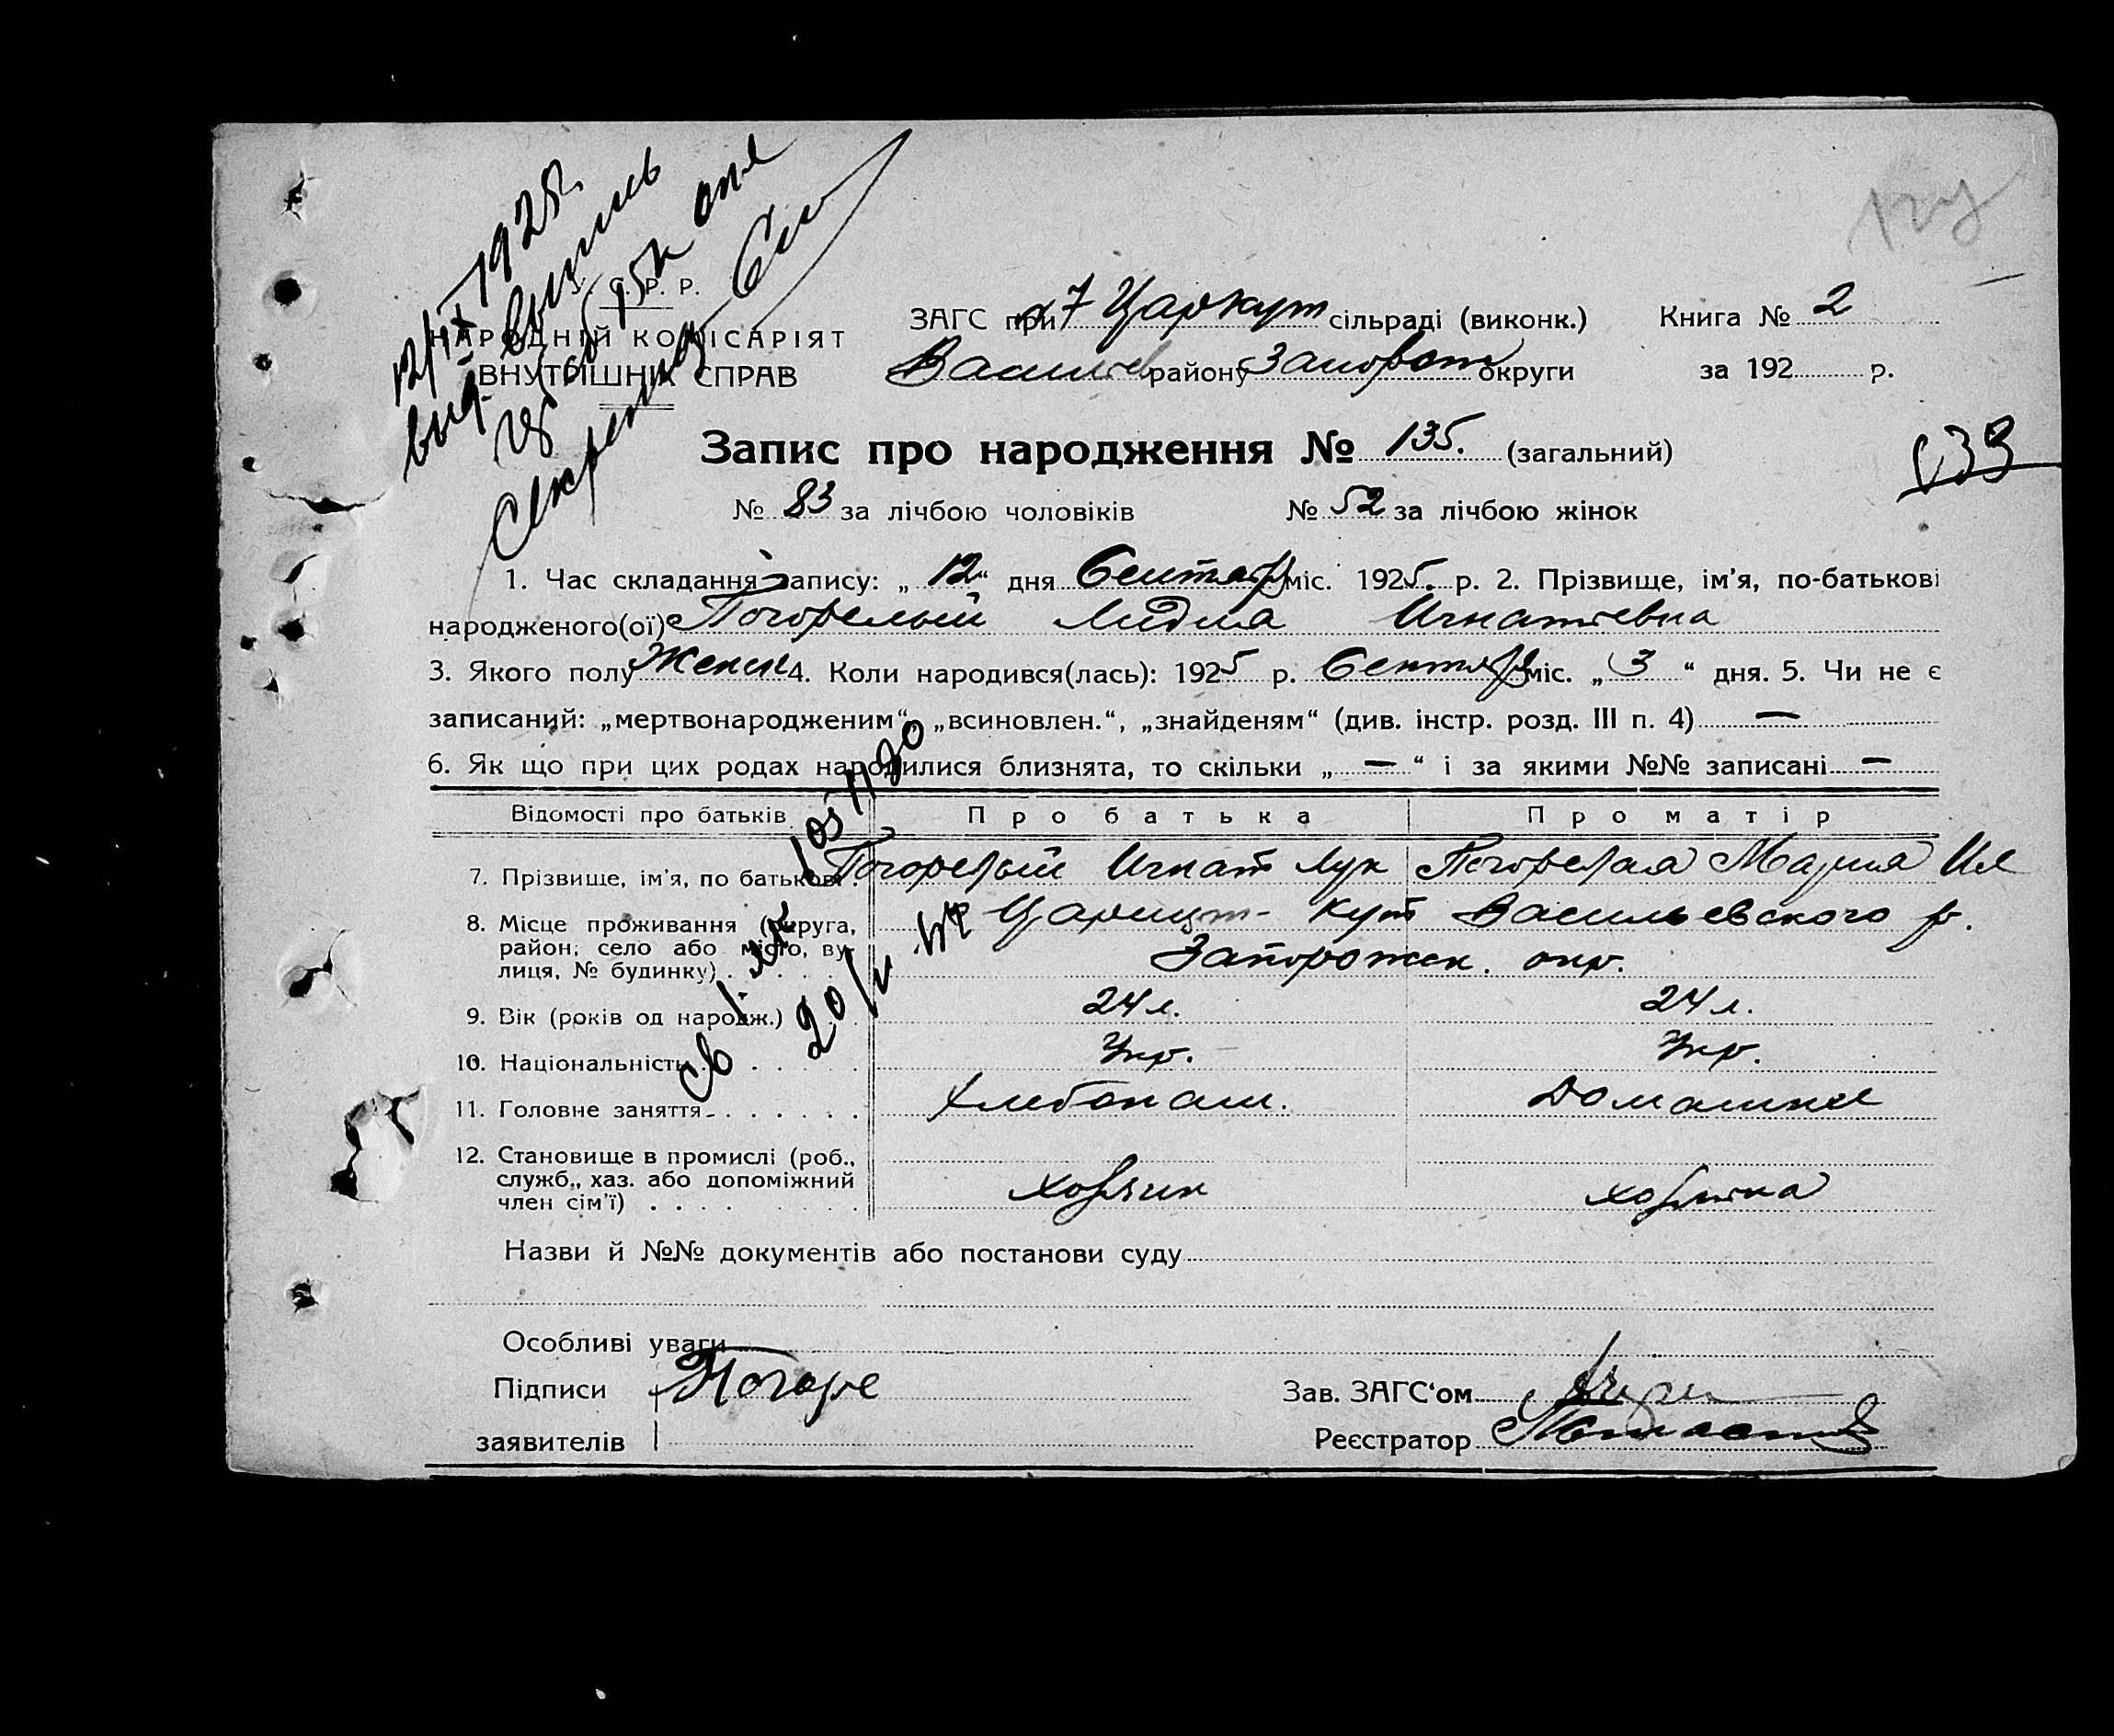 12/IX 1925г.
У. С. Р. Р.
НАРОДНІЙ КОМІСАРІЯТ
ВНУТРІШНІХ СПРАВ
ЗАГС при Царкут сільраді (виконк.) Книга № 2
Васильев району Запорож округи за 192 р.
Запис про народження № 135. (загальний)
139
№ 83 за лічбою чоловіків № 52 за лічбою жінок
1. Час складання запису: „ 12 “ дня Сентябр міс. 1925. р. 2. Прізвище, ім'я, по-батькові
народженого(ої) Погорелый Лидия Игнатьевна
3. Якого полу Женск 4. Коли народився(лась): 1925 р. Сентябр міс. „ 3 “ дня. 5. Чи не є
записаний: „мертвонародженим“, „всиновлен.“, „знайденям“ (див. інстр. розд. III п. 4) —
6. Як що при цих родах народилися близнята, то скільки „ — “ і за якими №№ записані —
Відомості про батьків Про батька Про матір
7. Прізвище, ім'я, по батькові. Погорелый Игнат Лук Погорелая Мария Ил
8. Місце проживання (округа, Царицын-Кут Васильевского р.
район, село або місто, ву-
лиця, № будинку) Запорожск. окр.
9. Вік (років од народж.) 24 л. 24 л.
10. Національність Укр. Укр.
11. Головне заняття Хлебопаш. Домашнее
12. Становище в промислі (роб.,
служб., хаз. або допоміжний
член сім'ї) хозяин хозяйка
Назви й №№ документів або постанови суду
Особливі уваги
Підписи Погоре Зав. ЗАГС‘ом
заявителів Реєстратор